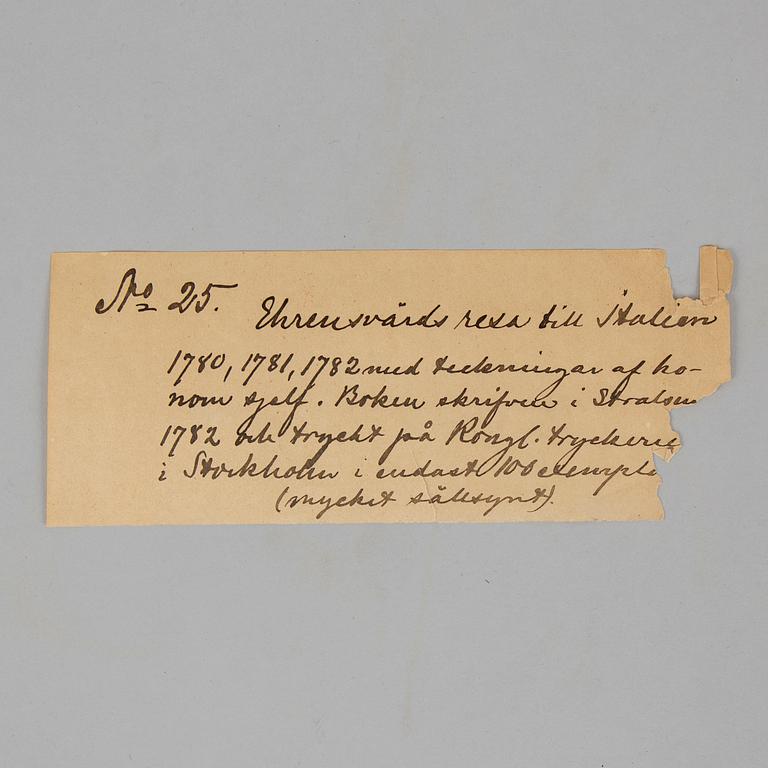 No 25.
Ehrensvärds resa till Italien
1780, 1781, 1782 med teckningar af ho-
nom sjelf. Boken skrifven i Stralsun
1782 och tryckt på Kongl. tryckerie
i Stockholm i endast 100 exempla
(mycket sällsynt).